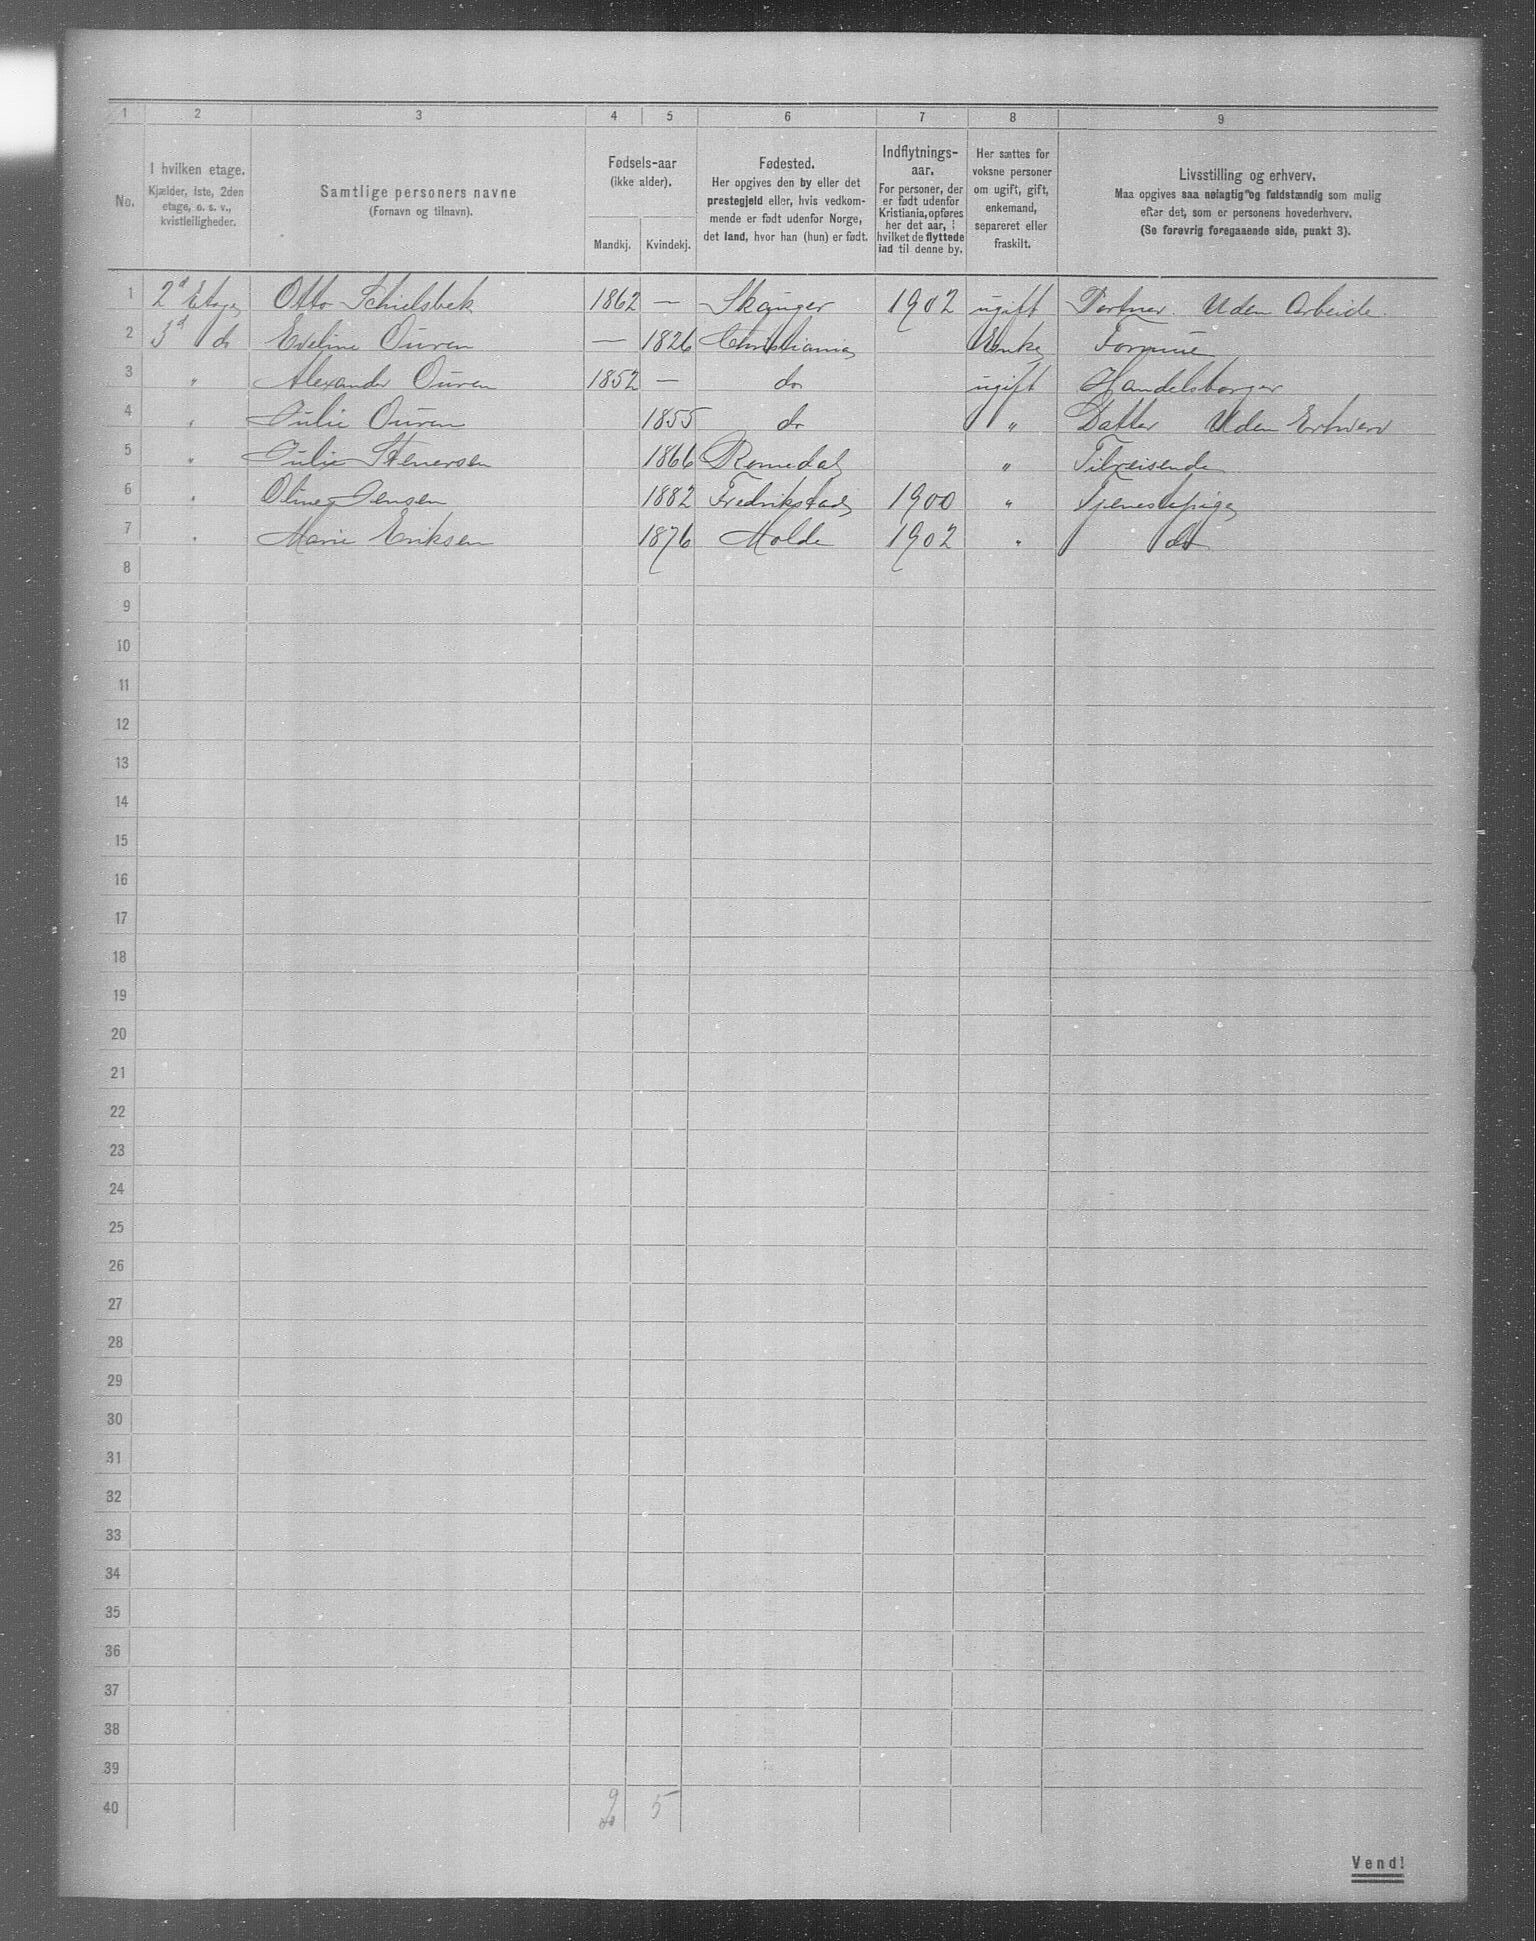 1 2 3 4 5 6 7 8 9
No.
I hvilken etage.
Kjælder, 1ste, 2den
etage, o. s. v.,
kvistleiligheder.
Samtlige personers navne
(Fornavn og tilnavn).
Fødsels-aar
(ikke alder).
Mandkj. Kvindekj.
Fødested.
Her opgives den by eller det
prestegjeld eller, hvis vedkom-
mende er født udenfor Norge,
det land, hvor han (hun) er født.
Indflytnings-
aar.
For personer, der
er født udenfor
Kristiania, opføres
her det aar, i
hvilket de flyttede
ind til denne by.
Her sættes for
voksne personer
om ugift, gift,
enkemand,
separeret eller
fraskilt.
Livsstilling og erhverv.
Maa opgives saa nøiagtig og fuldstændig som mulig
efter det, som er personens hovederhverv.
(Se forøvrig foregaaende side, punkt 3).
1 2d Etage Otto Schielsbek 1862 — 1902 ugift Portner. Uden Arbeide.
2 3d do Eveline Ouren — 1826 Christiania Enke Formue
3 " Alexander Ouren 1852 — do ugift Handelsborger
4 " Julie Ouren 1855 do " Datter Uden Erhverv
5 " Julie Stenersen 1866 Romedal " Tilreisende
6 " Oline Jensen 1882 Fredrikstad 1900 " Tjenestepige
7 " Marie Eriksen 1876 Molde 1902 " do
8
9
10
11
12
13
14
15
16
17
18
19
20
21
22
23
24
25
26
27
28
29
30
31
32
33
34
35
36
37
38
39
40 2 5
Vend!